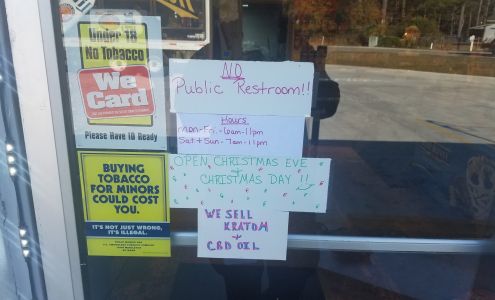 Under 18
No Tobacco
We
Card
Please Have ID Ready
BUYING
TOBACCO
FOR MINORS
COULD COST
YOU.
IT'S NOT JUST WRONG,
IT'S ILLEGAL.
NO
Public Restroom!!
Hours
Mon-Fri.-6am-11pm
Sat+Sun-7am-11pm
OPEN CHRISTMAS EVE
+
CHRISTMAS DAY!!
WE SELL
KRATOM
+
CBD OIL